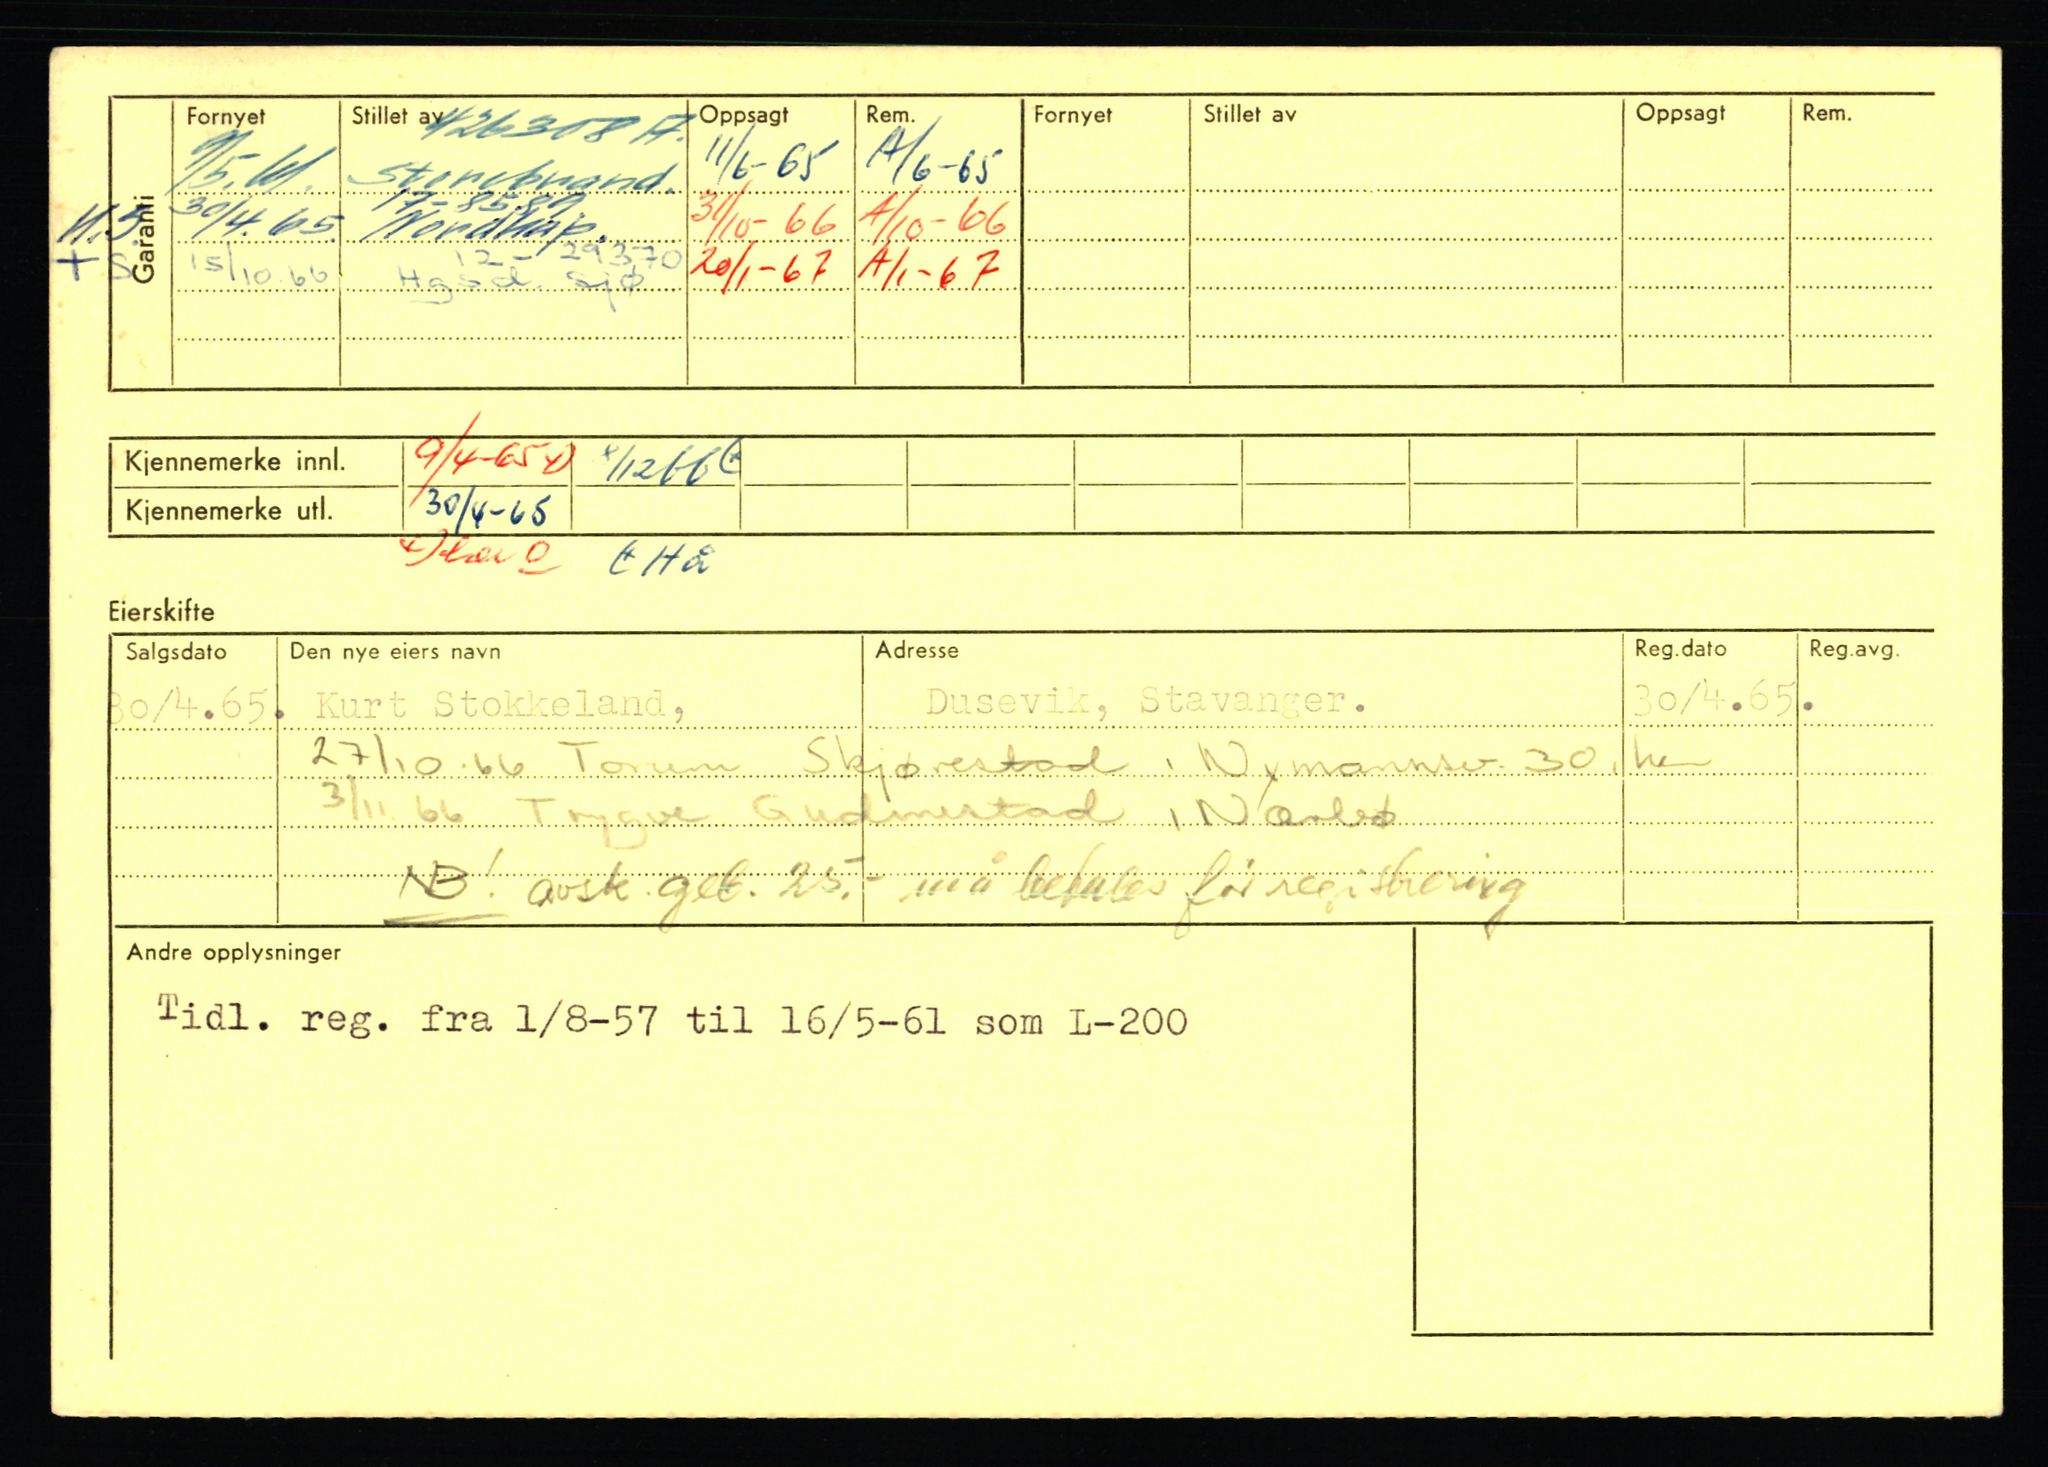 Fornyet Stillet av Oppsagt Rem. Fornyet Stillet av Oppsagt Rem.
426308 A.
9/5.61. Storebrand. 11/6-65 A/6-65
17-8587
30/4.65. Nordkap. 31/10-66 A/10-66
12-29370
+ S 15/10.66 Hgsd. Sjø 20/1-67 A/1-67
Garanti
Kjennemerke innl. 9/4-65 x) /12 66 (+
Kjennemerke utl. 30/4-65
x) (+ Hå
Eierskifte
Salgsdato Den nye eiers navn Adresse Reg.dato Reg.avg.
30/4.65. Kurt Stokkeland, Dusevik, Stavanger. 30/4.65.
27/10.66 Torunn Skjørestad, Nymannsv. 30, her
3/11.66 Trygve Gudmestad, Nærbø
NB! avsk. geb. 25.- må betales før registrering
Andre opplysninger
Tidl. reg. fra 1/8-57 til 16/5-61 som L-200